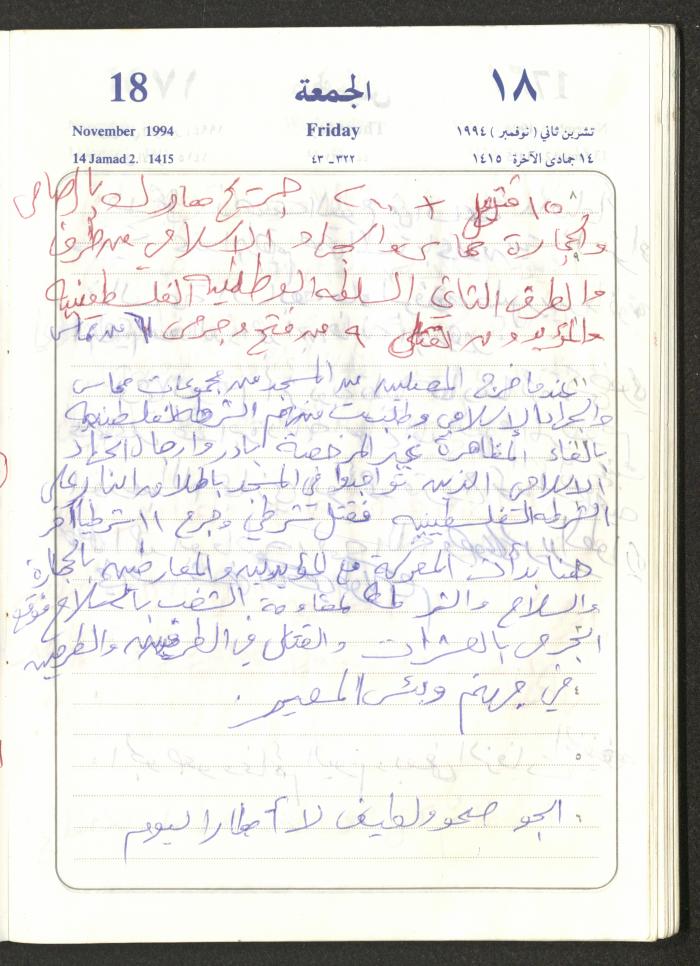 18 الجمعة ١٨
November 1994 Friday تشرين ثاني ( نوفمبر ) ١٩٩٤
14 Jamad 2. 1415 ٣٢٢ - ٤٣ ١٤ جمادى الآخرة ١٤١٥
١٥ قتيل + ٢٠٠ جريح بالرصاص
والحجارة حماس والجهاد الاسلامي من طرف
والطرف الثاني السلطة الوطنية الفلسطينية
والمؤيدون القتلى ٩ من فتح وجرحى ٦ من حماس
عندما خرج المصلين من المسجد من مجموعات حماس
والجهاد الاسلامي وطلبت منهم الشرطة الفلسطينية
بالغاء المظاهرة غير المرخصة بادروا رجال الجهاد
الاسلامي الذين تواجدوا في المسجد باطلاق النار على
الشرطة الفلسطينية فقتل شرطي وجرح ١١ شرطيا آخر
هنا بدأت المعركة مع المؤيدين والمعارضين بالحجارة
والسلاح والشرطة لمقاومة الشغب بالسلاح فوقع
الجرحى بالعشرات والقتلى في الطرفين والطرفين
في جهنم وبئس المصير.
الجو صحو ولطيف لا أمطار اليوم
٨
٩
٤
٥
٦